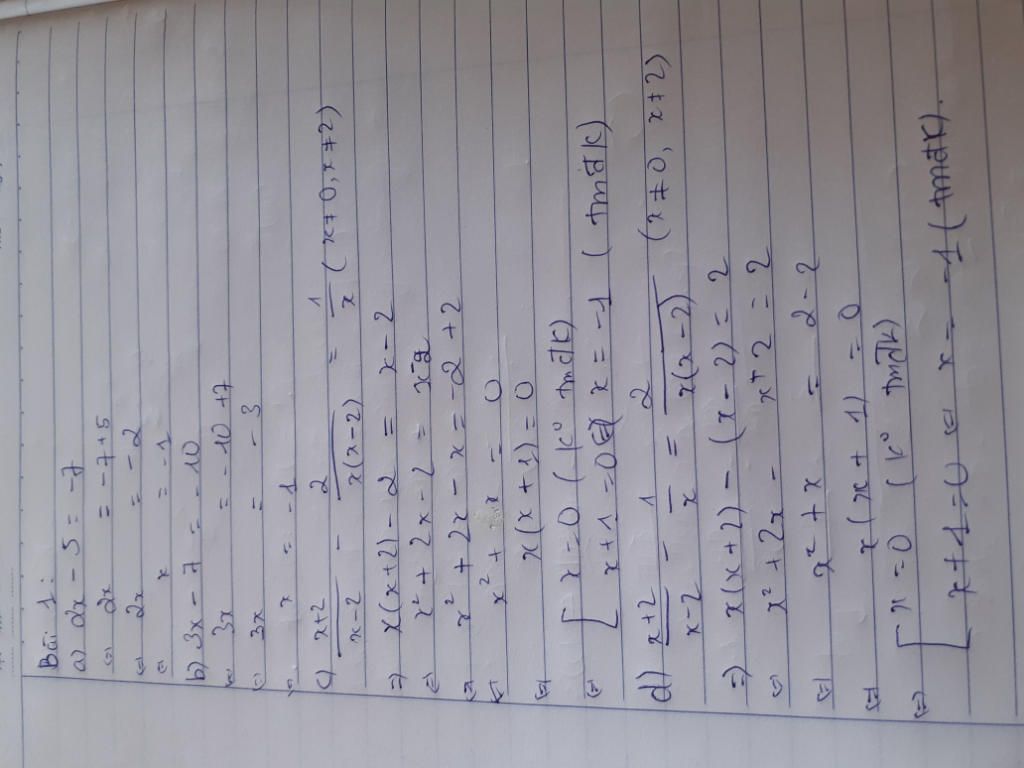 Bài 1:
a) 2x - 5 = -7
(=) 2x = -7 + 5
(=) 2x = -2
(=) x = -1
b) 3x - 7 = -10
(=) 3x = -10 + 7
(=) 3x = -3
(=) x = -1
c) x+2/x-2 - 2/x(x-2) = 1/x (x ≠ 0, x ≠ 2)
=) x(x+2) - 2 = x - 2
(=) x² + 2x - 2 = x - 2
(=) x² + 2x - x = -2 + 2
(=) x² + x = 0
(=) x(x+1) = 0
(=) [ x = 0 (k° tmđk)
x + 1 = 0 (=) x = -1 (tmđk)
d) x+2/x-2 - 1/x = 2/x(x-2) (x ≠ 0, x ≠ 2)
=) x(x+2) - (x-2) = 2
(=) x² + 2x - x + 2 = 2
(=) x² + x = 2 - 2
(=) x(x+1) = 0
(=) [ x = 0 (k° tmđk)
x + 1 = 0 (=) x = -1 (tmđk).